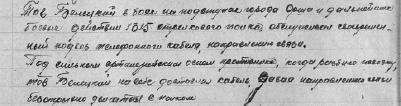 Тов. Белицкий в боях на подступах города Орша и дальнейших
боевых действиях 1315 стрелкового полка, обеспечивал своевремен-
ный подвоз телефонного кабеля, направления связи.
Под сильным артиллерийским огнем противника, когда рвалась
тов Белицкий на себе доставлял кабель, давая направлениям связи
безотказно действовать с полком.